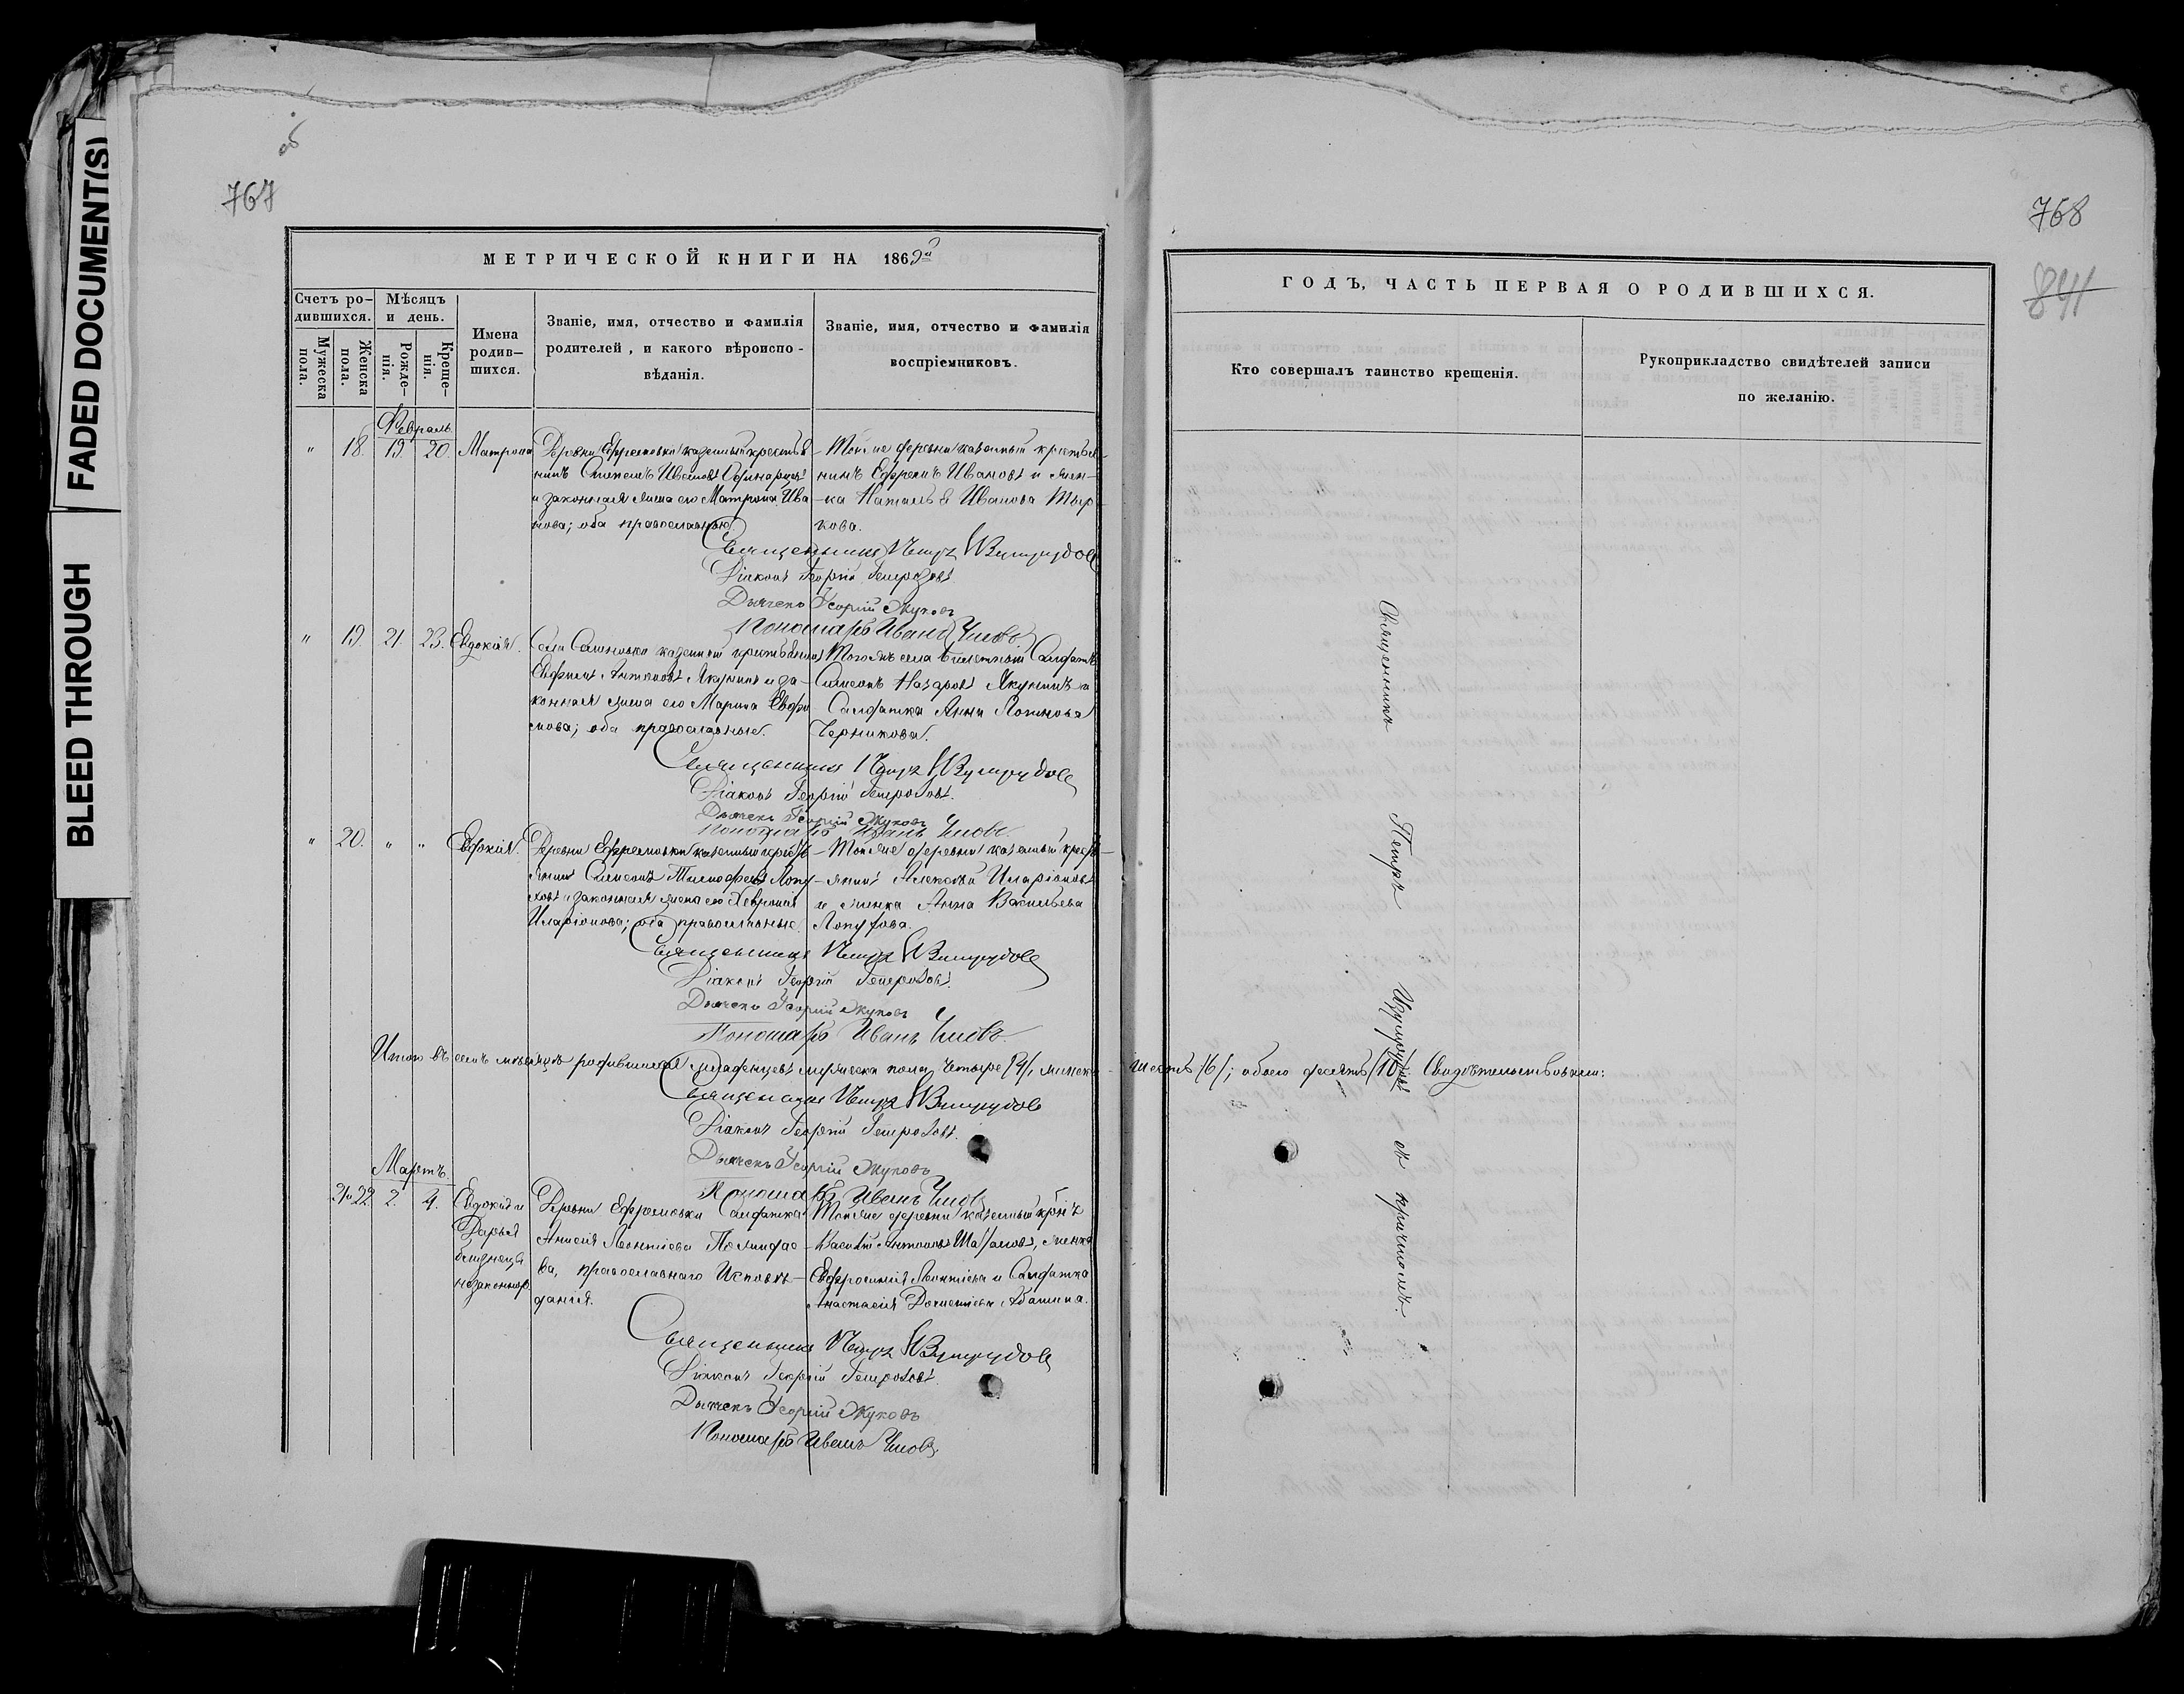 FADED DOCUMENT(S)
BLEED THROUGH
об
767
МЕТРИЧЕСКОЙ КНИГИ НА 1869й
Счетъ ро-
дившихся.
Мужеска
пола.
Женска
пола.
Мѣсяцъ
и день.
Рожде-
нія.
Креще-
нія.
Имена
родив-
шихся.
Званіе, имя, отчество и фамилія
родителей, и какого вѣроиспо-
вѣданія.
Званіе, имя, отчество и фамилія
воспріемниковъ.
Февраль
" 18. 19. 20. Матрона
Деревни Ефремовки казенный крестья-
нинъ Ивановъ
и законная жена его Матрона Ива
нова; оба православные.
Той же деревни казенный крестья-
нинъ Ефремъ Ивановъ и жен-
ка Наталья Иванова
кова.
Священникъ Петръ Изумрудовъ
Діаконъ Георгій
Дьячекъ Георгій Жуковъ
Пономарь Иванъ
" 19. 21. 23. Евдокія.
Села казенный крестьянинъ
Антоновъ Якунинъ и за-
конная жена его Марина Евфи
мова; оба православные.
Того жъ села билетный Солдатъ
Симеонъ Назаровъ Якунинъ и
Солдатка Анна Логинова
Черникова.
Священникъ Петръ Изумрудовъ
Діаконъ Георгій
Дьячекъ Георгій Жуковъ
Пономарь Иванъ
" 20. " " Евдокія.
Деревни Ефремовки казенный кресть-
янинъ Симеонъ Тимофеевъ Лопу-
ховъ и законная жена его Хевронія
Иларіонова; оба православные.
Той же деревни казенный кресть-
янинъ Алексѣй Иларіоновъ
и женка Анна Васильева
Лопухова.
Священникъ Петръ Изумрудовъ
Діаконъ Георгій
Дьячекъ Георгій Жуковъ
Пономарь Иванъ
Итого въ семъ мѣсяцѣ родившихся младенцевъ мужеска пола четыре /4/, женска
Священникъ Петръ Изумрудовъ
Діаконъ Георгій
Дьячекъ Георгій Жуковъ
Пономарь Иванъ
Мартъ.
21 и 22. 2. 4.
Евдокія и
Дарья
близнецы
незаконнор.
Деревни Ефремовки Солдатка
Анисія Леонтіева
ва, православнаго Исповѣ-
данія.
Той же деревни казенный крнъ
Василій Антоновъ женка
Евфросинія Леонтіева и Солдатка
Анастасія
Священникъ Петръ Изумрудовъ
Діаконъ Георгій
Дьячекъ Георгій Жуковъ
Пономарь Иванъ
768
841
ГОДЪ, ЧАСТЬ ПЕРВАЯ О РОДИВШИХСЯ.
Кто совершалъ таинство крещенія.
Рукоприкладство свидѣтелей записи
по желанію.
Священникъ Петръ Изумрудовъ съ причтомъ.
шесть /6/; обоего десять /10/ Свидѣтельствовали: